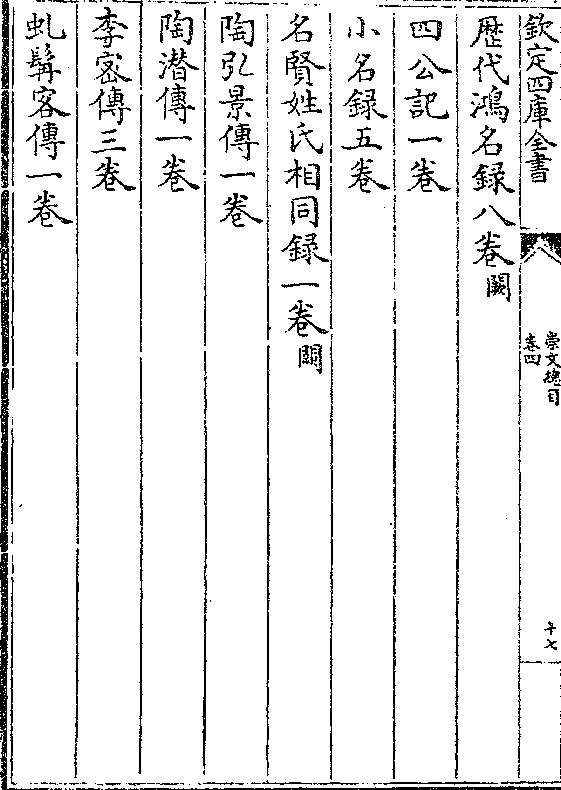 欽定四庫全書
崇文總目
卷四
十七
歴代鴻名録八卷闕
四公記一卷
小名録五卷
名賢姓氏相同録一卷闕
陶弘景傳一卷
陶潜傳一卷
李宻傳三卷
虬髯客傳一卷